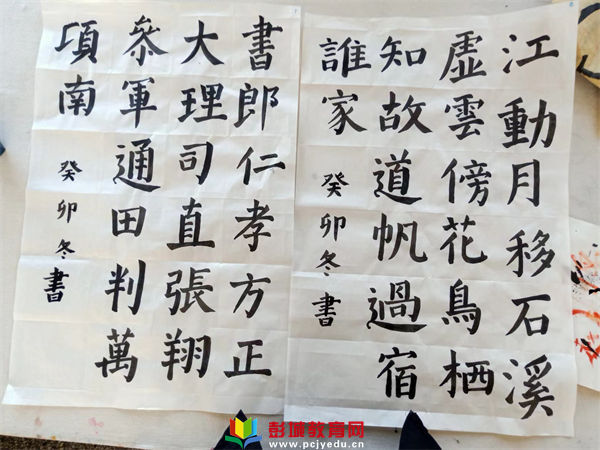 江動月移石溪
虛雲傍花鳥栖
知故道帆過宿
誰家
癸卯冬書
書郎仁孝方正
大理司直張翔
叅軍通田判萬
項南
癸卯冬書
彭城教育网
www.pcjyedu.cn